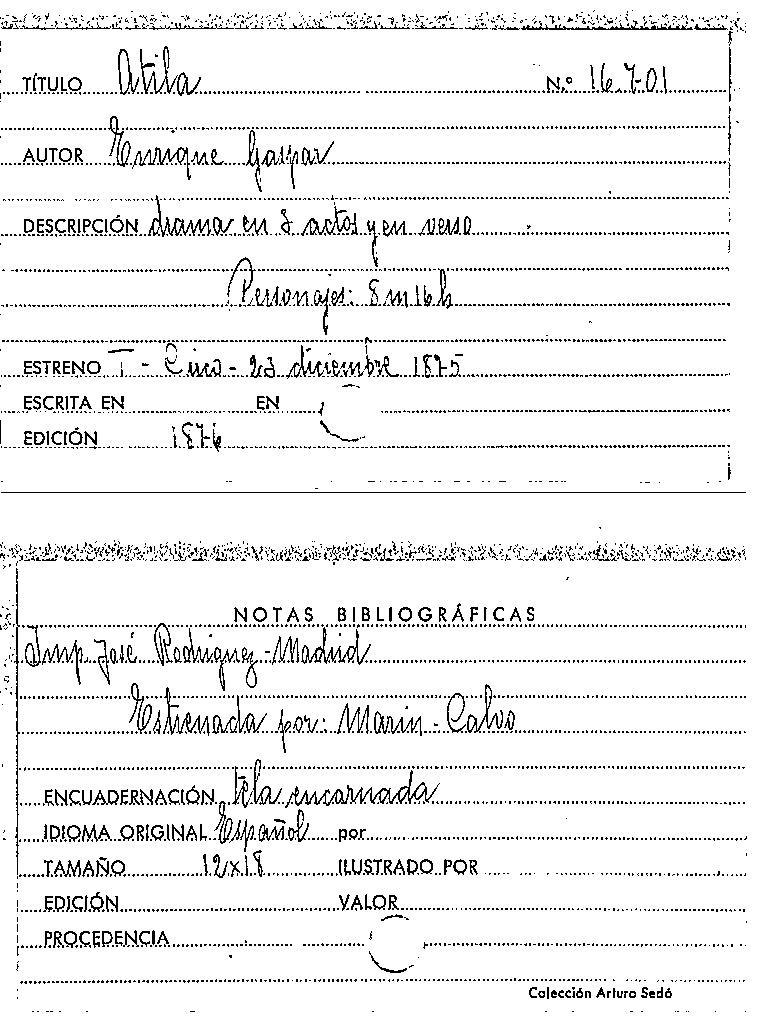 TÍTULO Atila N.º 16.7-01
AUTOR Enrique Gaspar
DESCRIPCIÓN drama en 3 actos y en verso
Personajes: 8 m 16 h
ESTRENO T - Circo - 23 diciembre 1875
ESCRITA EN EN
EDICIÓN 1876
NOTAS BIBLIOGRÁFICAS
Imp José Rodriguez - Madrid
Estrenada por: Marin - Calvo
ENCUADERNACIÓN tela encarnada
IDIOMA ORIGINAL Español por
TAMAÑO 12x18 ILUSTRADO POR
EDICIÓN VALOR
PROCEDENCIA
Colección Arturo Sedó